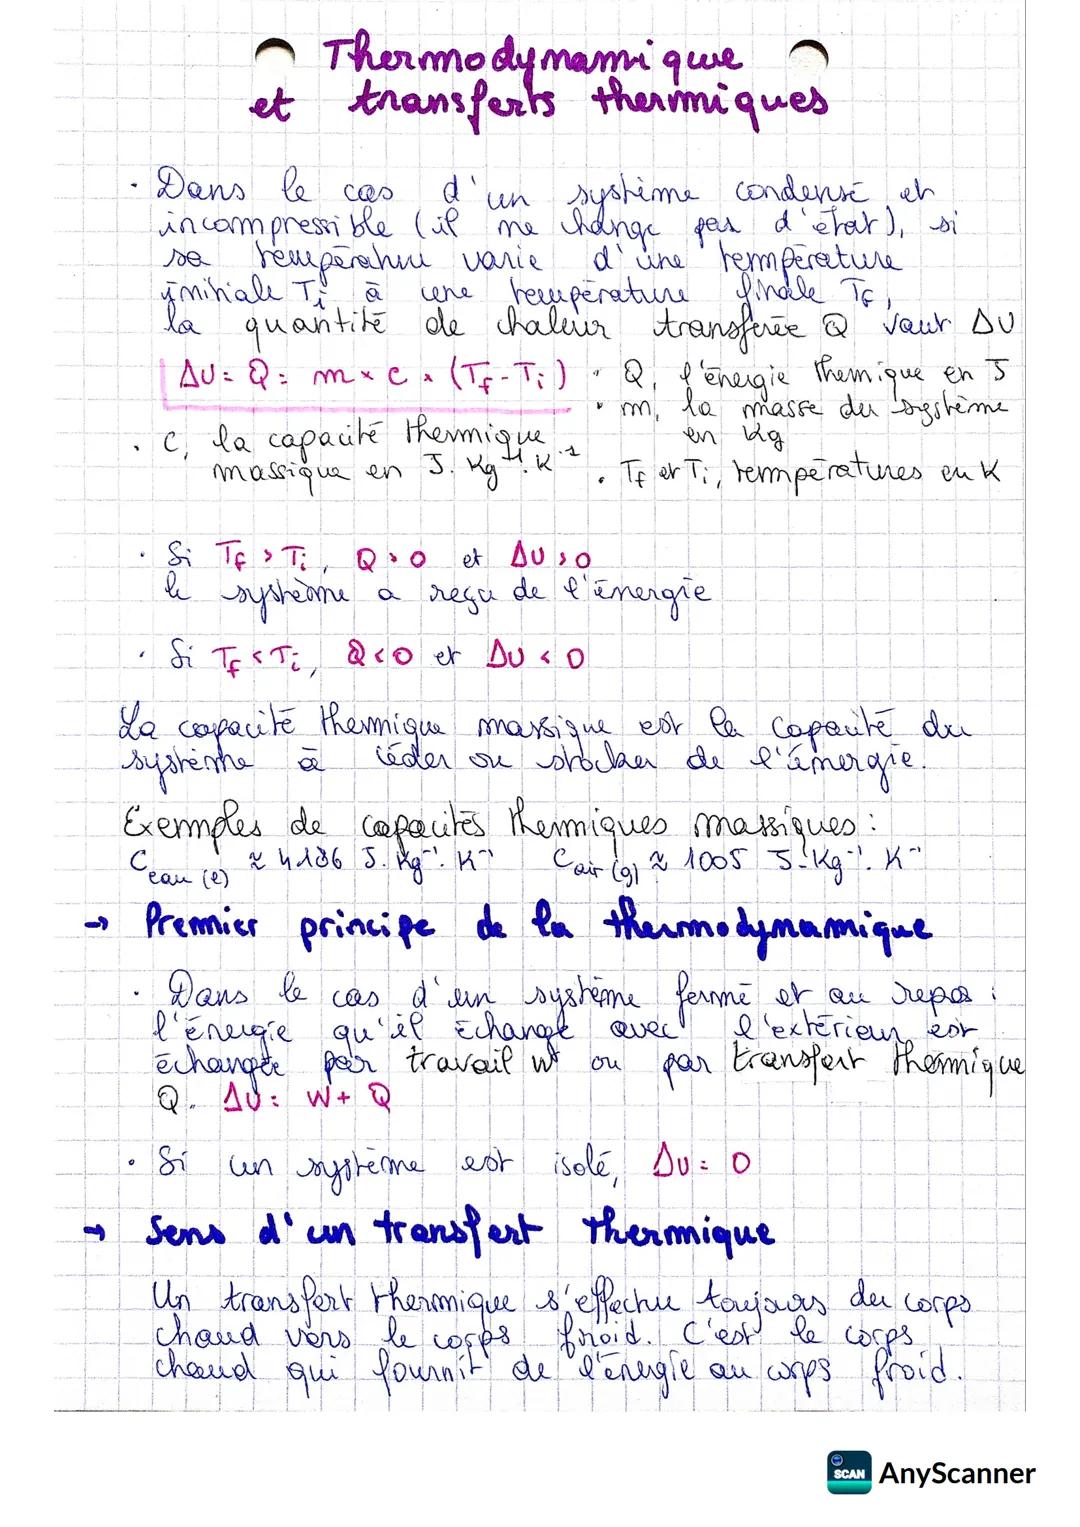 Thermodynamique
et transferts thermiques
· Dans le cas d'un système condensé et
incompressible (il ne change pas d'état), si
sa température varie d'une température
initiale Ti à une température finale Tf,
la quantité de chaleur transférée Q vaut ΔU
ΔU = Q = m × c × (Tf - Ti)
· Q, l'énergie thermique en J
· m, la masse du système
en Kg
· C, la capacité thermique
massique en J. Kg⁻¹. K⁻¹
· Tf et Ti, températures en K
· Si Tf > Ti, Q > 0 et ΔU > 0
le système a reçu de l'énergie
· Si Tf < Ti, Q < 0 et ΔU < 0
La capacité thermique massique est la capacité du
système à céder ou stocker de l'énergie.
Exemples de capacités thermiques massiques :
C eau (l) ≈ 4186 J. Kg⁻¹. K⁻¹ C air (g) ≈ 1005 J. Kg⁻¹. K⁻¹
→ Premier principe de la thermodynamique
· Dans le cas d'un système fermé et au repos :
l'énergie qu'il échange avec l'extérieur est
échangée par travail W ou par transfert thermique
Q. ΔU = W + Q
· Si un système est isolé, ΔU = 0
→ Sens d'un transfert thermique
Un transfert thermique s'effectue toujours du corps
chaud vers le corps froid. C'est le corps
chaud qui fournit de l'énergie au corps froid.
SCAN AnyScanner